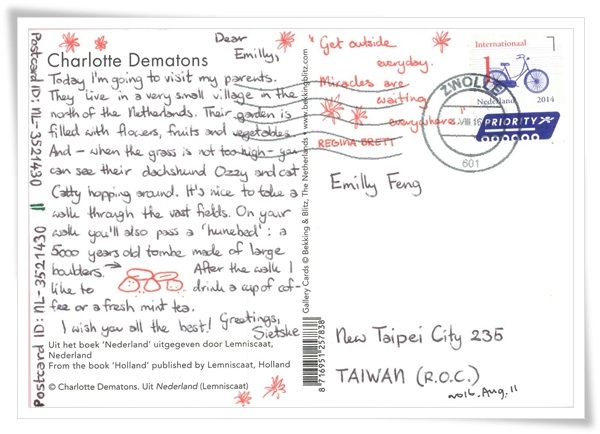 Postcard ID: NL-3521430 || Postcard ID: NL-3521430
Charlotte Dematons
Dear
Emilly,
Today I'm going to visit my parents.
They live in a very small village in the
north of the Netherlands. Their garden is
filled with flowers, fruits and vegetables.
And - when the grass is not too high - you
can see their dachshund Ozzy and cat
Catty hopping around. It's nice to take a
walk through the vast fields. On your
walk you'll also pass a 'hunebed': a
5000 years old tombe made of large
boulders. → After the walk I
like to drink a cup of cof-
fee or a fresh mint tea.
I wish you all the best! Greetings,
Sietske
Uit het boek 'Nederland' uitgegeven door Lemniscaat,
Nederland
From the book 'Holland' published by Lemniscaat, Holland
© Charlotte Dematons. Uit Nederland (Lemniscaat)
Gallery Cards © Bekking & Blitz, The Netherlands • www.bekkingblitz.com
8 716951 257838
"Get outside
everyday.
Miracles are
waiting
everywhere."
REGINA BRETT
Internationaal
1
Nederland 2014
ZWOLLE
601
PRIORITY
Emilly Feng
New Taipei City 235
TAIWAN (R.O.C.)
2016. Aug. 11